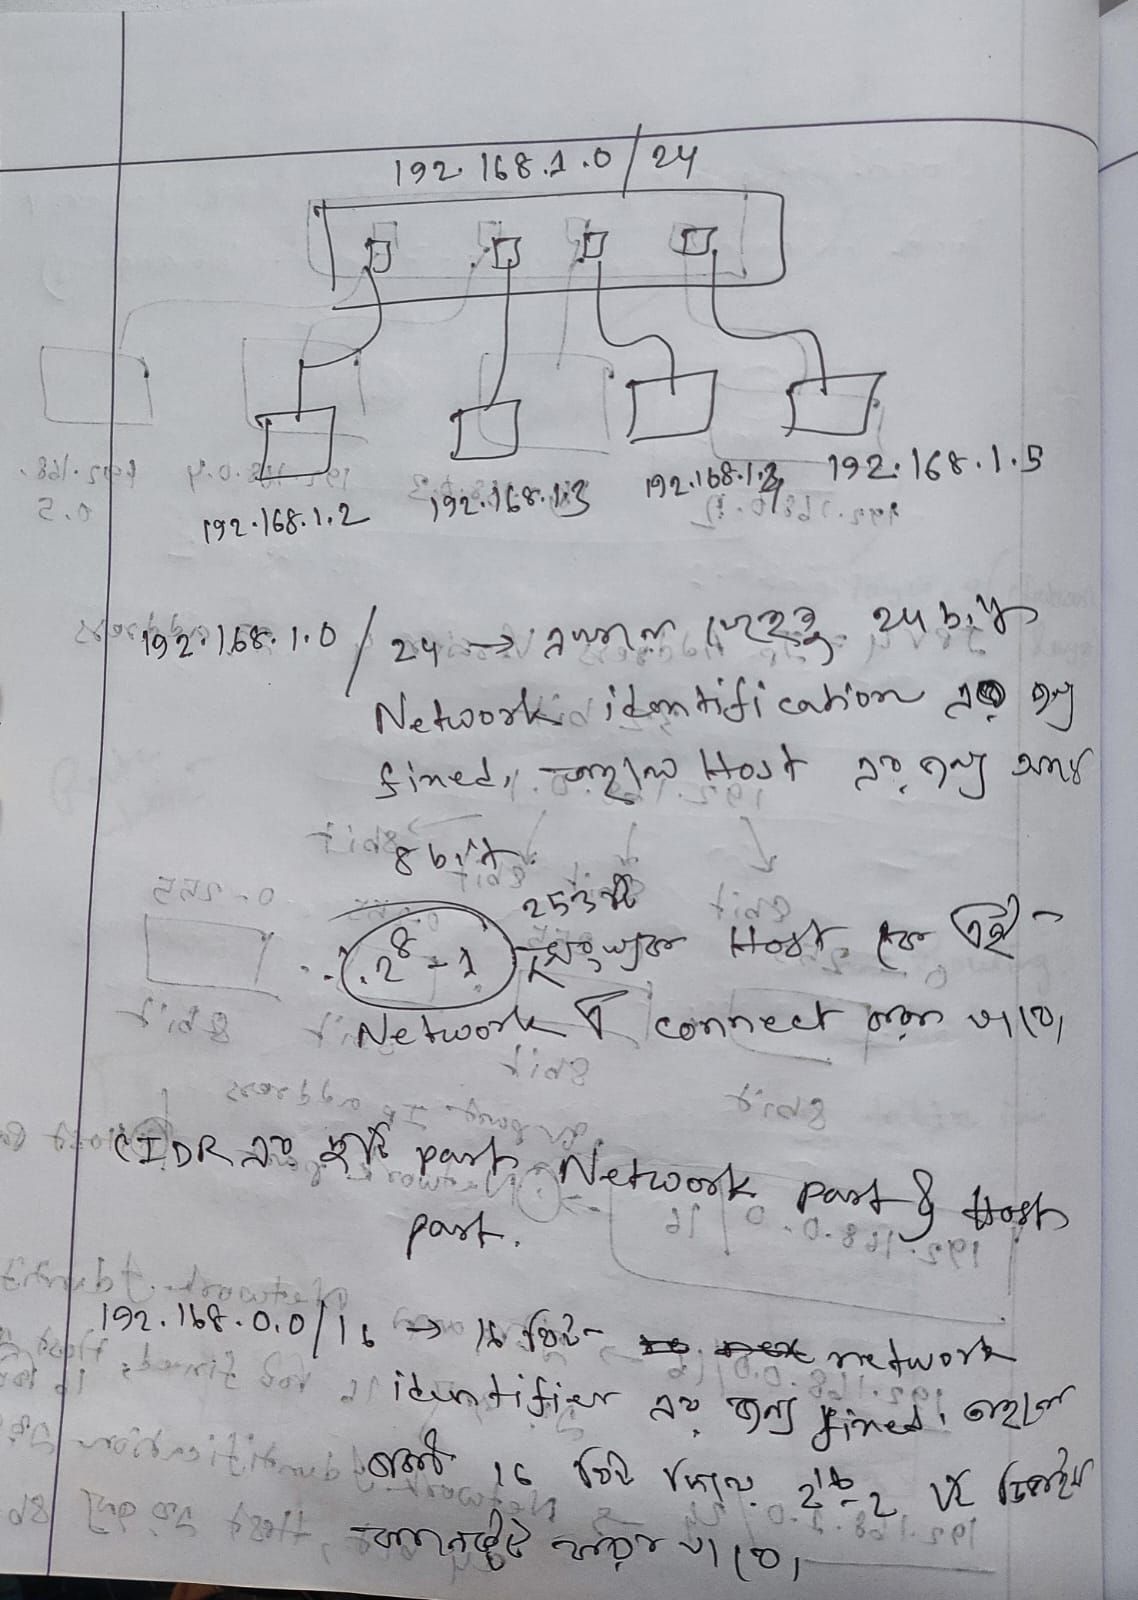 192.168.1.0/24
192.168.1.2
192.168.1.3
192.168.1.4
192.168.1.5
192.168.1.0/24 → এখানে যেহেতু 24 bit
Network identification এর জন্য
fixed, তাহলে Host এর জন্য আর
8 bit.
253 টি
2^8 - 1 Host কে এই
Network এ connect করা যাবে,
CIDR এর দুইটি part Network part & Host
part.
192.168.0.0/16 → 16 বিট network
identifier এর জন্য fixed. তাহলে
বাকী 16 বিট দিয়ে 2^16-2 টি ডিভাইস
কানেক্ট করা যাবে,